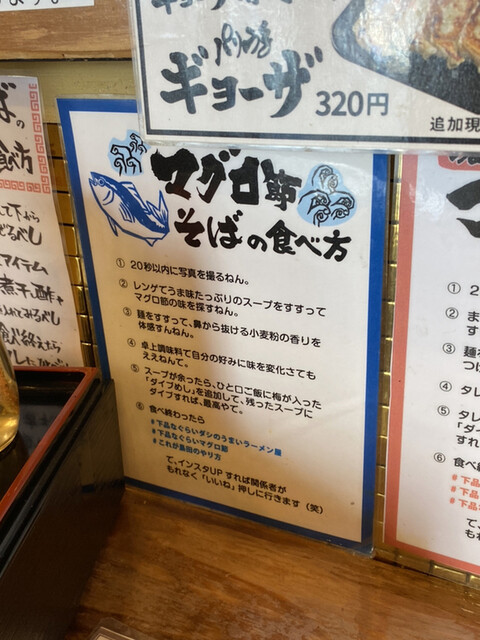 ギョーザ
パリッ
ギョーザ 320円
追加現
ばの
食べ方
て下から
アイテム
煮干し酢
マグロ節
そばの食べ方
① 20秒以内に写真を撮るねん。
② レンゲでうま味たっぷりのスープをすすって
マグロ節の味を探すねん。
③ 麺をすすって、鼻から抜ける小麦粉の香りを
体感すんねん。
④ 卓上調味料で自分の好みに味を変化さても
ええねんで。
⑤ スープが余ったら、ひと口ご飯に梅が入った
「ダイブめし」を追加して、残ったスープに
ダイブすれば、最高やで。
⑥ 食べ終わったら
#下品なぐらいダシのうまいラーメン屋
#下品なぐらいマグロ節
#これが島田のやり方
て、インスタUPすれば関係者が
もれなく「いいね」押しに行きます（笑）
① 2
② ま
す
③ 麺
つけ
④ タレ
⑤ タレ
「ダイ
すれ
⑥ 食べ終
#下品
#下品
#下品
て、
もれ